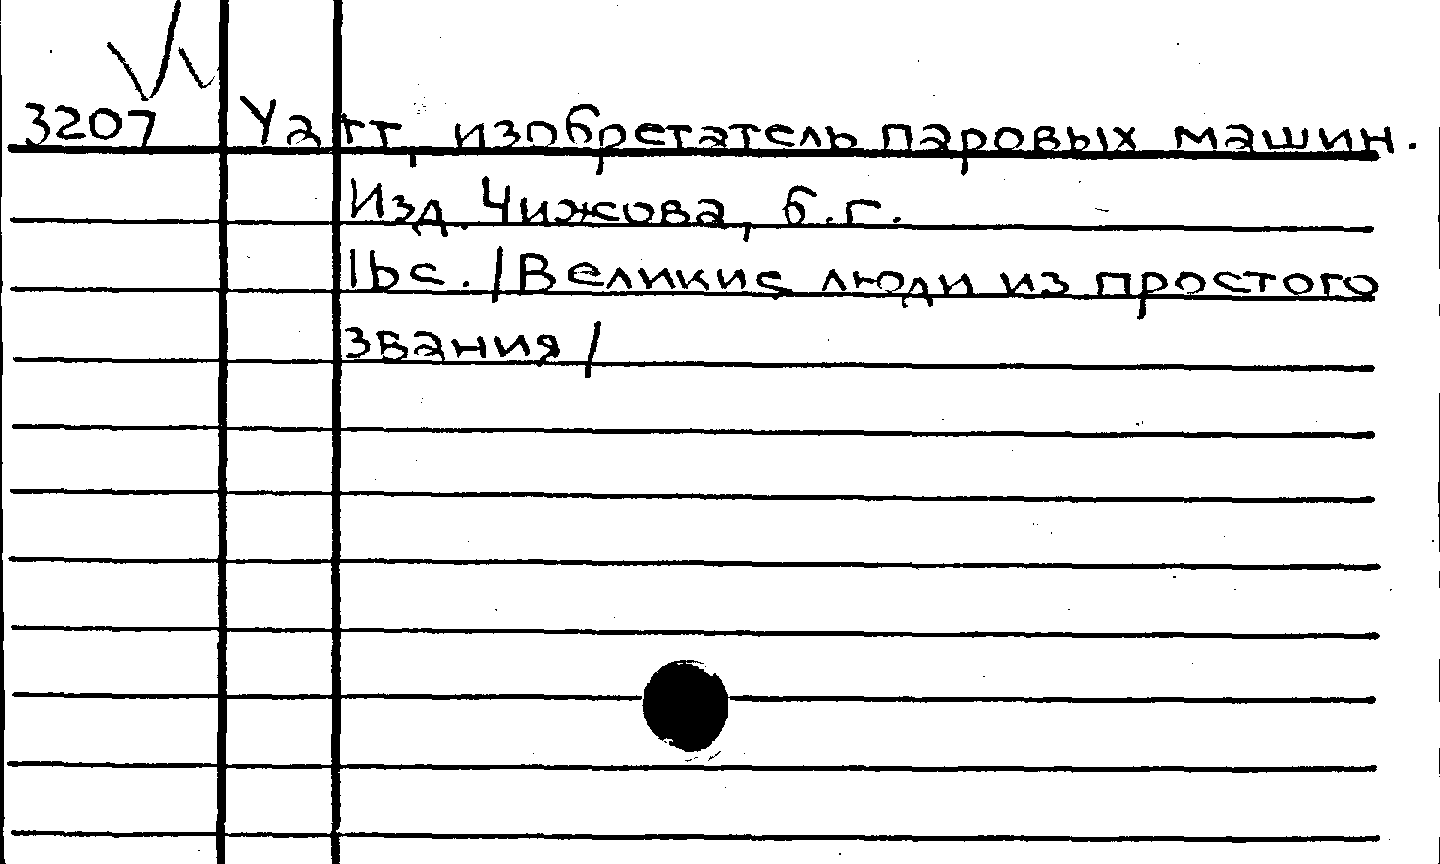 3207 Уатт, изобретатель паровых машин.
Изд. Чижова, б.г.
16с. /Великие люди из простого
звания/